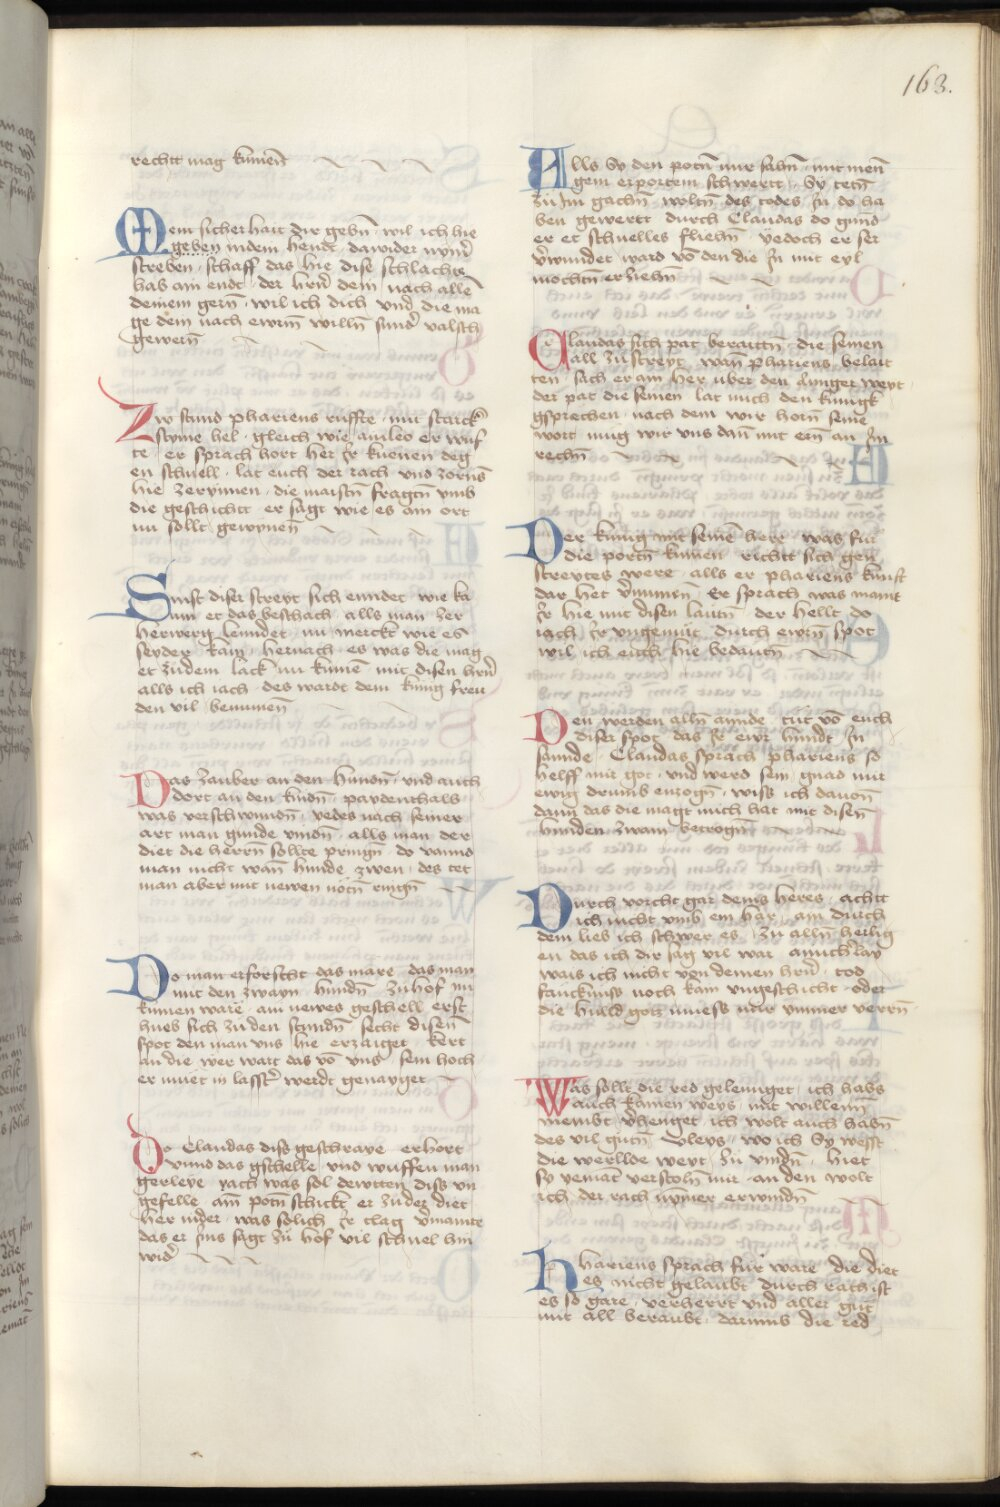 163.
rechtt mag kumen̄
Mein sicherhait dir gebn̄ · wil ich hie
geben in dem hendt · da wider nym̄
streben · schaff das hie dise schlachte
has am endt · der hrn̄ dein nach alle
deinem gern̄ · wil ich dich vnd die ma
ge dein nach ewrm̄ willn̄ sund̄ valsch
gewern̄
Zw stund phariens ruffte · mit starck̄
styme hel · gleich wie ain leo er wuf
te · er sprach hort her Jr kuenen deg
en schnell · lat euch der rach vnd zorns
hie zerynnen · die maistn̄ fragtn̄ vmb
die geschicht er sagt wie es am ort
nu sollt gewynen̄
Sunst diser streyt sich enndet · wie ka
um et das beschach · alls man zer
herwerg lenndet · nu merckt wie es
seyder kam · hernach · es was die mag
et zu dem lack nu kumē mit disen hrn̄
alls ich iach · des wardt dem kunig freu
den vil benumen̄
Das zauber an den hundn̄ · vnd auch
dort an den kindn̄ · paydenthals
was verschwundn̄ · yedes nach seiner
art man gunde vindn̄ · alls man der
diet die herrn̄ sollte pringn̄ · do vannd
man nicht wan̄ hunde zwen · des tet
man aber mit newen nötn̄ ringn̄
Do man erforscht das märe das man
mit den zwayn hundn̄ zu hof nu
kumen wäre · ain newes geschell erst
hueb sich zu den stundn̄ · secht disen̄
spot den man vns hie erzaiget · kert
an die wer wart das vō vns sein hoch
er muet in lasst̄ werdt genayget
Do Claudas diss geschraye erhort
vnnd das gschelle · vnd wuffen man
gerleye iach was sol dewtten diss vn
gefelle · ain potn̄ schickt er zu der diet
her nider · was solich Jr clag vmainte
das er Jms sagt zu hof vil schnel hin
wid̄
Alls Sy den potn̄ nur sahn̄ · mit men̄
gem erportem schwertt · Sy tetn̄
zu Jm gachn̄ · woltn̄ des todes Jn do ha
ben gewertt durch Claudas do gund
er et schnelles fliehn̄ · yedoch er ser
v̄wundet ward vō den die Jn mit eyl
mochtn̄ erziehn̄
Claudas sich pat beraittn̄ · die seinen
all zu streyt · wan̄ phariens belait
ten · sach er ain her vber den Anger weyt ·
der pat die seinen lat mich den kunigk
gsprechen · nach dem wir horn̄ seine
wort mug wir vns dan̄ mit ern̄ an Jm
rechn̄
Der kunig mit seinē here · was fur
die portn̄ kumen · richtt sich gen
streytes were · alls er phariens kunft
dar het v̄numen · Er sprach was maint
Jr hie mit disen lautn̄ · der hellt do
iach Jr vngemüt · durch ewrn̄ spot
wil ich euch hie bedautn̄
Den werden alln̄ annde · tüt vō euch
diser spot das Jr ewr hundt Jn
sannde · Claudas sprach phariens so
helff mir got · vnd werd sein gnad mir
ewig drumb enzogn̄ · wiss ich dauon̄
dann das die magt mich hat mit disen̄
hunden zwain betrogn̄
Durch vorcht gar deins heres · achtt
ich nicht vmb ein har · ain durch
dein lieb ich schwer es · zu alln̄ heilig
en das ich dir sag vil war
wais ich nicht von deinen hrn̄ · tod
fanckhnuss noch kain vngeschicht · oder
die huld gotz muess mir ymmer verrn̄
Was sollt die red gelenngt · ich habs
auch kainen weys · mit willenn̄
niembt v̄henget · ich wolt auch habn̄
des vil gutn̄ vleys · wo ich Sy wesst
die werllde weyt zu vindn̄ · hiet
sy yemat verstoln̄ mir · an den wolt
ich der rach nymer erwindn̄
Phariens sprach für ware die diet
es nicht gelaubt · durch rath ist
es so gare · verherrt vnd aller gut
mit all beraubt · darumb die red